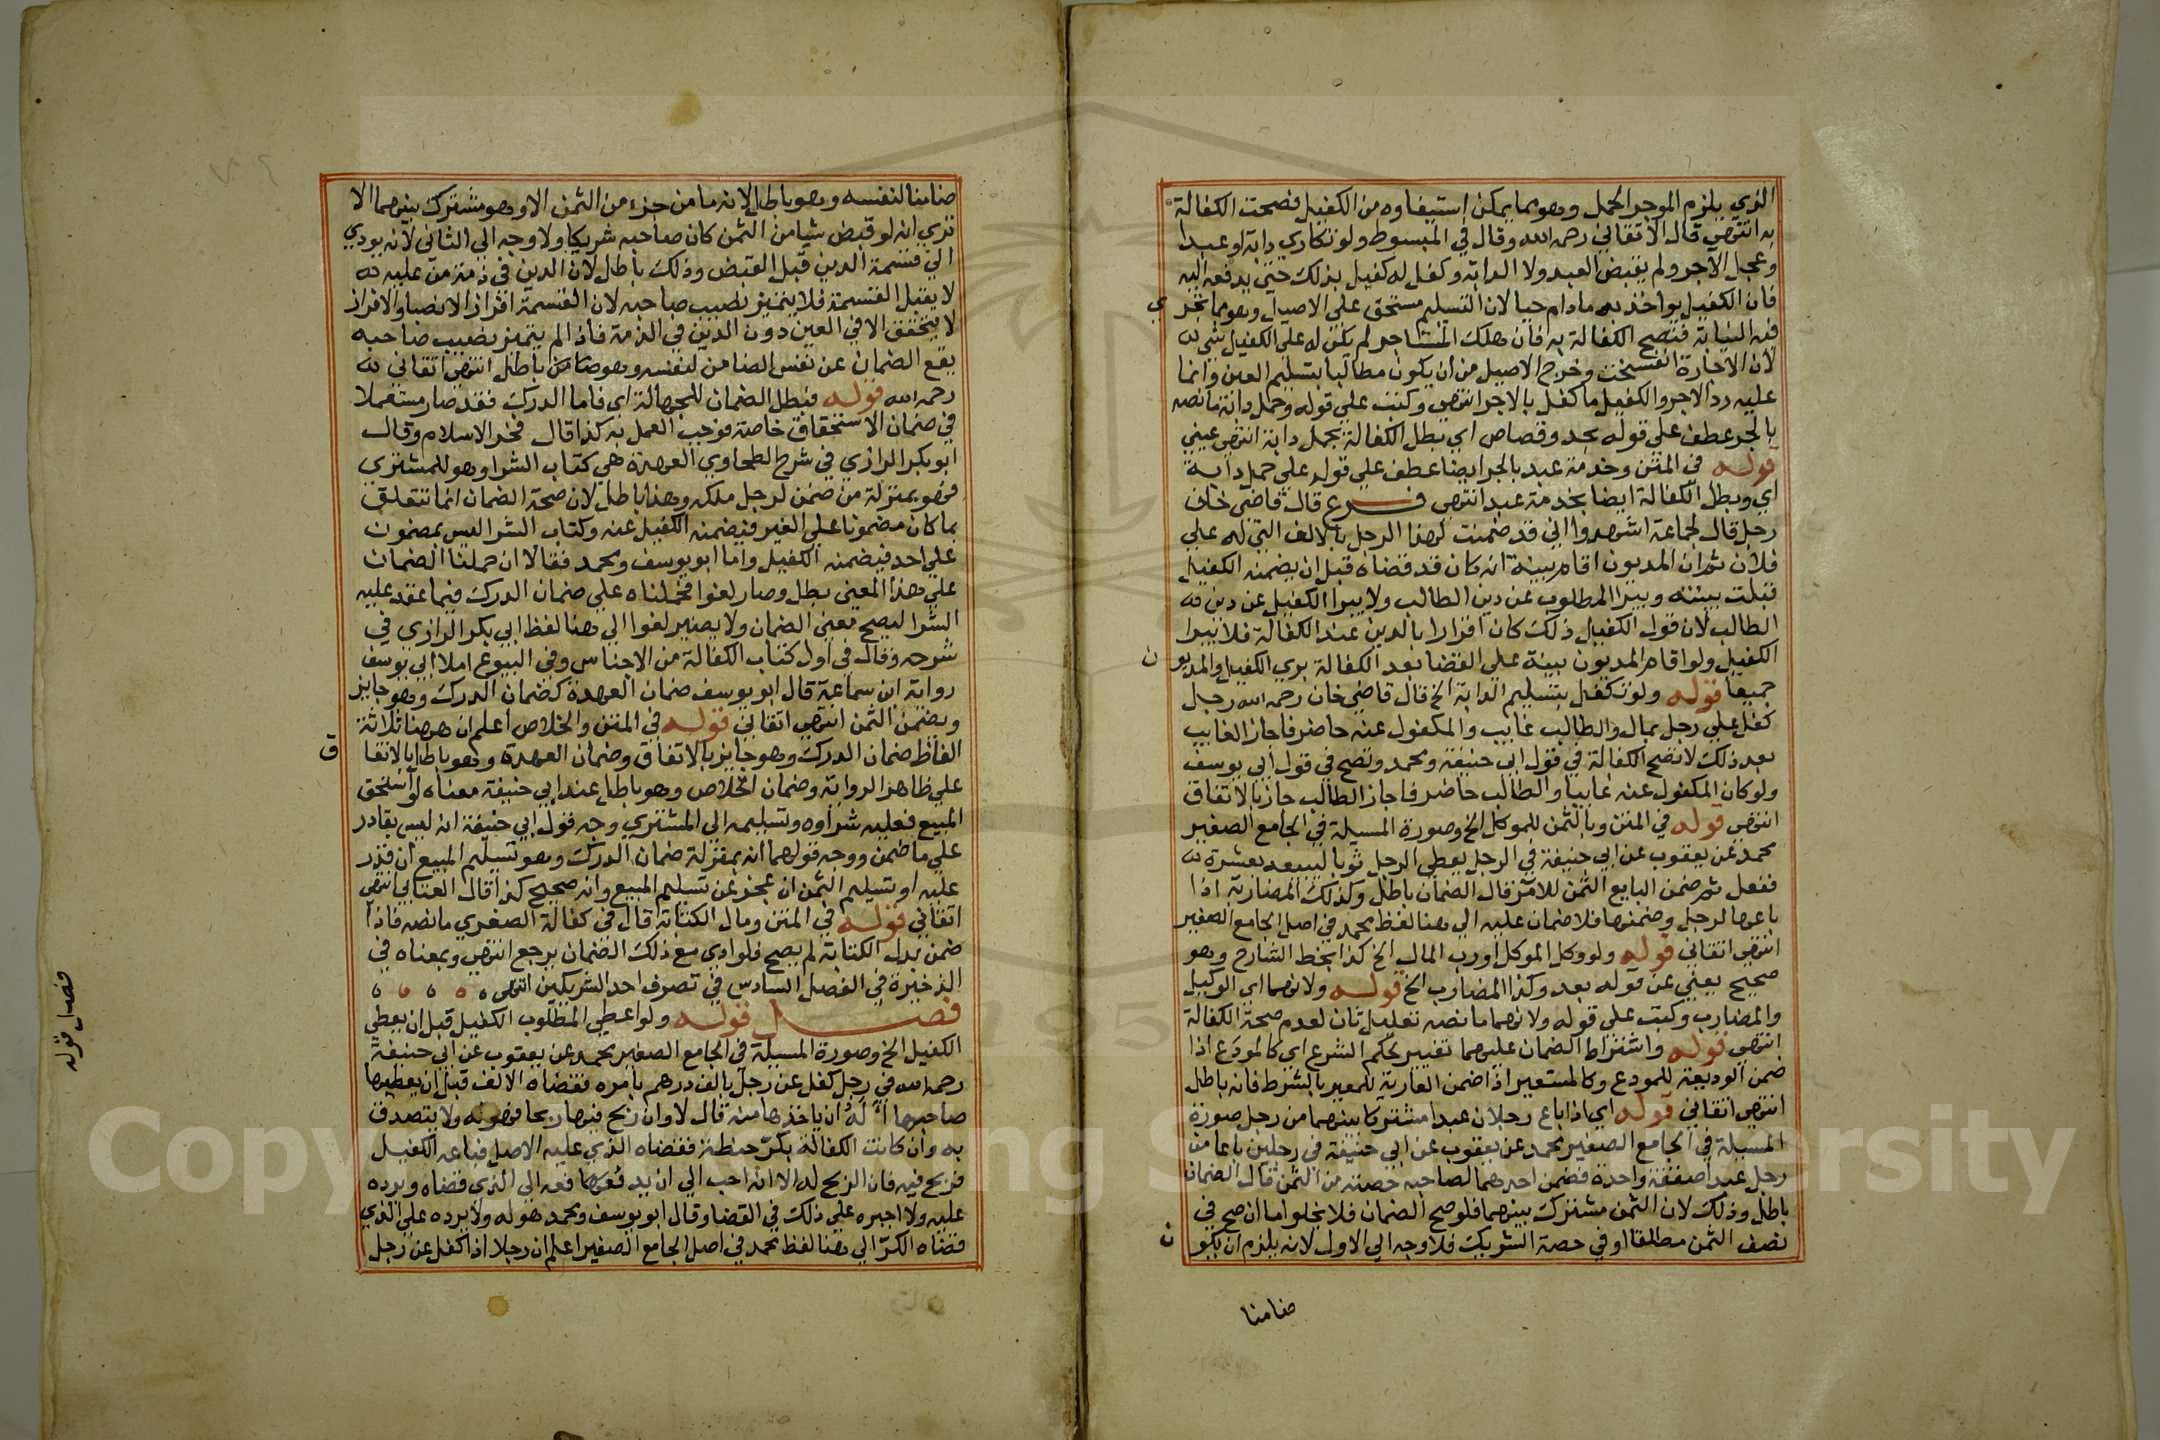 الذي يلزم الموجر الحمل وهو مما يمكن استيفاوه من الكفيل فصحت الكفالة
به انتهى قال الاتقاني رحمه الله وقال في المبسوط ولو تكارى دابة او عبدا
وعجل الاجر ولم يقبض العبد ولا الدابة وكفل له كفيل بذلك حتى يدفعه اليه
فان الكفيل يواخذ به مادام حيا لان التسليم مستحق على الاصيل وهو مما تجري
فيه النيابة فتصح الكفالة به فان هلك المستاجر لم يكن له على الكفيل شي
لان الاجارة انفسخت وخرج الاصيل من ان يكون مطالبا بتسليم العين وانما
عليه رد الاجر والكفيل ما كفل بالاجر انتهى وكتب على قوله وحمل دابة ما نصه
بالجر عطف على قوله بحد وقصاص اي بطل الكفالة بحمل دابة انتهى عيني
قوله في المتن وخدمة عبد بالجر ايضا عطف على قوله على حمل دابة
اي وبطل الكفالة ايضا بخدمة عبد انتهى فرع قال قاضي خان
رجل قال لجماعة اشهدوا اني قد ضمنت لهذا الرجل بالالف التي له على
فلان ثم ان المديون اقام بينة انه كان قد قضاه قبل ان يضمنه الكفيل
قبلت بينته ويبرا المطلوب عن دين الطالب ولا يبرا الكفيل عن دين
الطالب لان قول الكفيل ذلك كان اقرارا بالدين عند الكفالة فلا يبرا
الكفيل ولو اقام المديون بينة على القضا بعد الكفالة بري الكفيل والمديون
جميعا قوله ولو تكفل بتسليم الدابة الخ قال قاضي خان رحمه الله رجل
كفل على رجل بمال والطالب غايب والمكفول عنه حاضر فاجاز الغايب
بعد ذلك لا تصح الكفالة في قول ابي حنيفة ومحمد وتصح في قول ابي يوسف
ولو كان المكفول عنه غايبا والطالب حاضر فاجاز الطالب جاز بالاتفاق
انتهى قوله في المتن وبالثمن للموكل الخ وصورة المسيلة في الجامع الصغير
محمد عن يعقوب عن ابي حنيفة في الرجل يعطي الرجل ثوبا ليبيعه بعشرة
ففعل ثم ضمن البايع الثمن للامر قال الضمان باطل وكذلك المضاربة اذا
باعها لرجل وضمنها فلا ضمان عليه الى هنا لفظ محمد في اصل الجامع الصغير
انتهى اتقاني قوله ولو وكل الموكل اورب المال الخ كذا بخط الشارح وهو
صحيح يعني عن قوله بعد وكذا المضارب الخ قوله ولانهما اي الوكيل
والمضارب وكتب على قوله ولانهما ما نصه تعليل ثان لعدم صحة الكفالة
انتهى قوله واشتراط الضمان عليهما تغيير لحكم الشرع اي كالمودع اذا
ضمن الوديعة للمودع وكالمستعير اذا ضمن العارية للمعير بالشرط فانه باطل
انتهى اتقاني قوله اي اذا باع رجلان عبدا مشتركا بينهما من رجل صورة
المسيلة في الجامع الصغير محمد عن يعقوب عن ابي حنيفة في رجلين باعا من
رجل عبدا صفقة واحدة فضمن احدهما لصاحبه حصته من الثمن قال الضمان
باطل وذلك لان الثمن مشترك بينهما فلو صح الضمان فلا يخلوا ما ان صح في
نصف الثمن مطلقا او في حصة الشريك فلا وجه الى الاول لانه يلزم ان يكون
ضامنا
ضامنا لنفسه وهو باطل لانه ما من جزء من الثمن الا وهو مشترك بينهما الا
ترى انه لو قبض شيا من الثمن كان صاحبه شريكا ولا وجه الى الثاني لانه يودي
الى قسمة الدين قبل القبض وذلك باطل لان الدين في ذمة من عليه
لا يقبل القسمة فلا يتميز نصيب صاحبه لان القسمة افراز الانصبا والافراز
لا يتحقق الا في العين دون الدين في الذمة فاذا لم يتميز نصيب صاحبه
يقع الضمان عن نفس الضامن لنفسه وهو ضامن باطل انتهى اتقاني
رحمه الله قوله فبطل الضمان للجهالة اي فاما الدرك فقد صار مستعملا
في ضمان الاستحقاق خاصة فوجب العمل به كذا قال فخر الاسلام وقال
ابو بكر الرازي في شرح الطحاوي العهدة هي كتاب الشرا وهو للمشتري
فهو بمنزلة من ضمن لرجل ملكه وهذا باطل لان صحة الضمان انما تتعلق
بما كان مضمونا على الغير فيضمنه الكفيل عنه وكتاب الشرا ليس بمضمون
على احد فيضمنه الكفيل واما ابو يوسف ومحمد فقالا ان حملنا الضمان
على هذا المعنى بطل وصار لغوا فحملناه على ضمان الدرك فيما عقد عليه
الشرا ليصح معنى الضمان ولا يصير لغوا الى هنا لفظ ابي بكر الرازي في
شرحه وقال في اول كتاب الكفالة من الاجناس وفي البيوع املا ابي يوسف
رواية ابن سماعة قال ابو يوسف ضمان العهدة كضمان الدرك وهو جايز
ويضمن الثمن انتهى اتقاني قوله في المتن والخلاص اعلم ان ههنا ثلاثة
الفاظ ضمان الدرك وهو جايز بالاتفاق وضمان العهدة وهو باطل بالاتفاق
على ظاهر الرواية وضمان الخلاص وهو باطل عند ابي حنيفة معناه لو استحق
المبيع فعليه شراوه وتسليمه الى المشتري وجه قول ابي حنيفة انه ليس بقادر
على ما ضمن ووجه قولهما انه بمنزلة ضمان الدرك وهو تسليم المبيع ان قدر
عليه او تسليم الثمن ان عجز عن تسليم المبيع وانه صحيح كذا قال العتابي انتهى
اتقاني قوله في المتن ومال الكتابة قال في كفالة الصغرى ما نصه فاذا
ضمن بدل الكتابة لم يصح فلو ادى مع ذلك الضمان يرجع انتهى وبمعناه في
الذخيرة في الفصل السادس في تصرف احد الشريكين انتهى
فصل قوله ولو اعطى المطلوب الكفيل قبل ان يعطي
الكفيل الخ وصورة المسيلة في الجامع الصغير محمد عن يعقوب عن ابي حنيفة
رحمه الله في رجل كفل عن رجل بالف درهم بامره فقضاه الالف قبل ان يعطيها
صاحبها اله ان ياخذها منه قال لا وان ربح فيها ربحا فهو له ولا يتصدق
به وان كانت الكفالة بكر حنطة فقضاه الذي عليه الاصل فباعه الكفيل
فربح فيه فان الربح له الا انه احب الي ان يدفعه الى الذي قضاه ويرده
عليه ولا اجبره على ذلك في القضا وقال ابو يوسف ومحمد هو له ولا يرده على الذي
قضاه الكر الى هنا لفظ محمد في اصل الجامع الصغير اعلم ان رجلا اذا كفل عن رجل
فصل قوله
Copyright © King Saud University